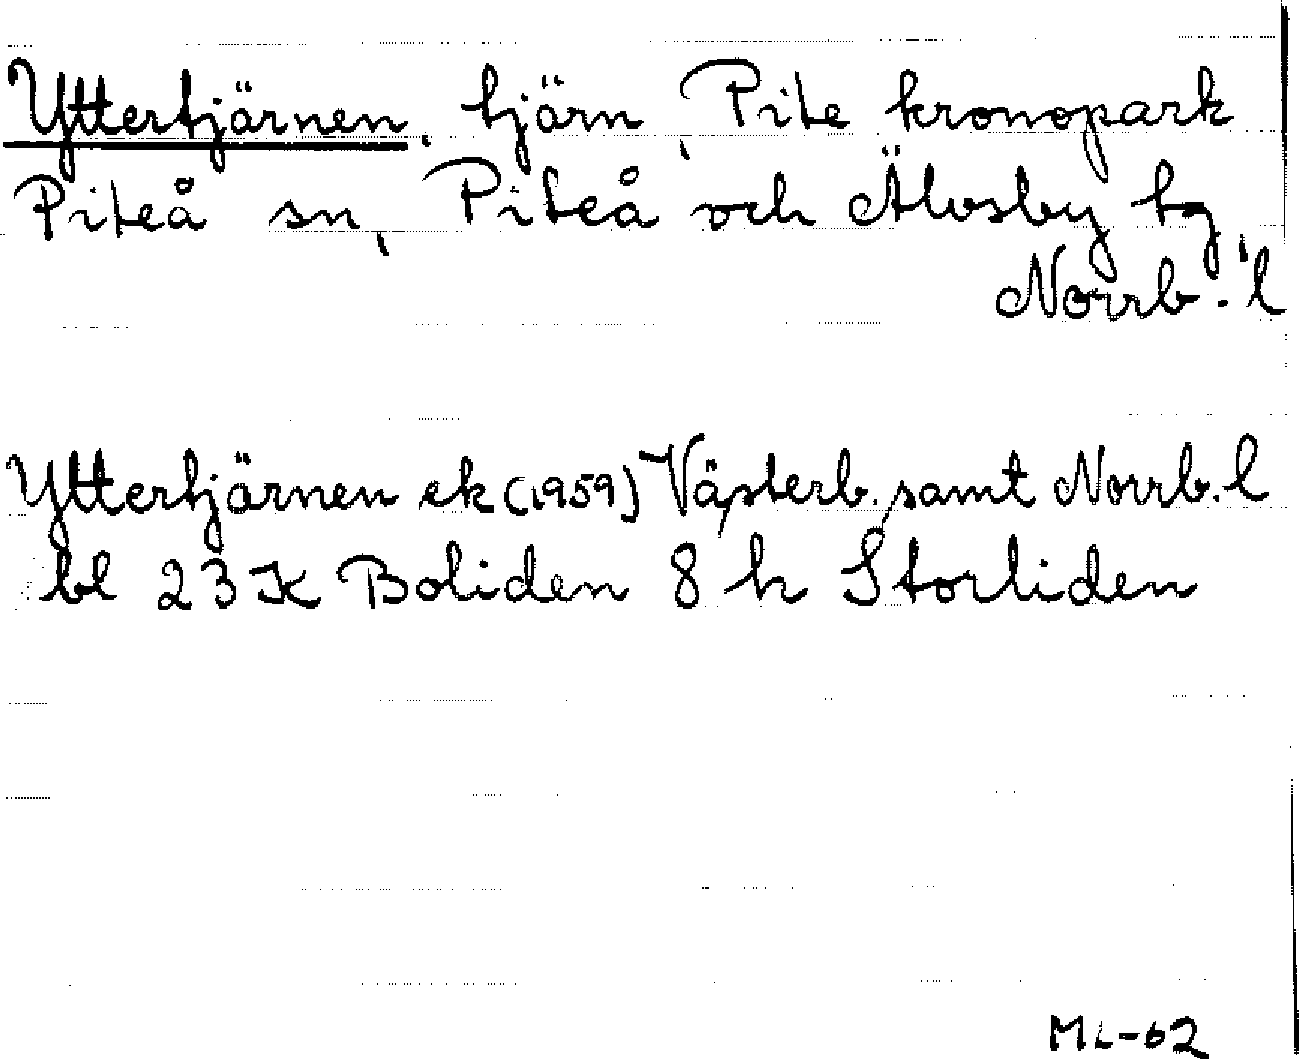 Yttertjärnen, tjärn, Pite kronopark
Piteå sn, Piteå och Älvsby tg,
Norrb. l
Yttertjärnen ek (1959) Västerb. samt Norrb. l
bl 23 K Boliden 8 h Storliden
ML-62